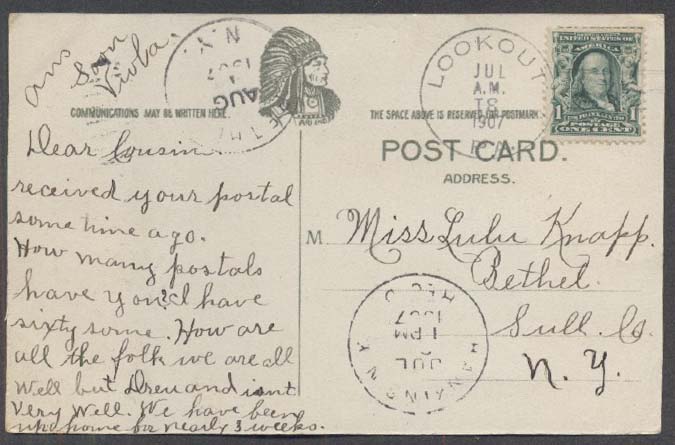 ans Soon
Viola.
N.Y.
1907
AUG
COMMUNICATIONS MAY BE WRITTEN HERE.
Dear Cousin
received your postal
some time ago.
How many postals
have you? I have
sixty some. How are
all the folk we are all
well but and isnt
very well. We have been
up home for nearly 3 weeks.
LOOKOUT
JUL
A.M.
18
1907
PA.
UNITED STATES OF
AMERICA
1 1
POSTAGE
ONE CENT
THE SPACE ABOVE IS RESERVED FOR POSTMARK.
POST CARD.
ADDRESS.
M Miss Lulu Knapp.
Bethel.
Sull. Co.
N.Y.
REC'D
1907
1 PM
JUL
N.Y.